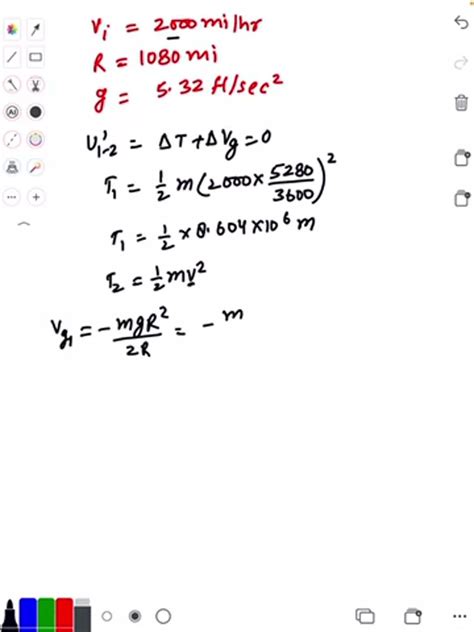 V_i = 2000 mi/hr
R = 1080 mi
g = 5.32 ft/sec²
U'_{1-2} = ΔT + ΔV_g = 0
T_1 = 1/2 m (2000 × 5280/3600)²
T_1 = 1/2 × 8.604 × 10⁶ m
T_2 = 1/2 mv²
V_{g1} = - mgR²/2R = - m